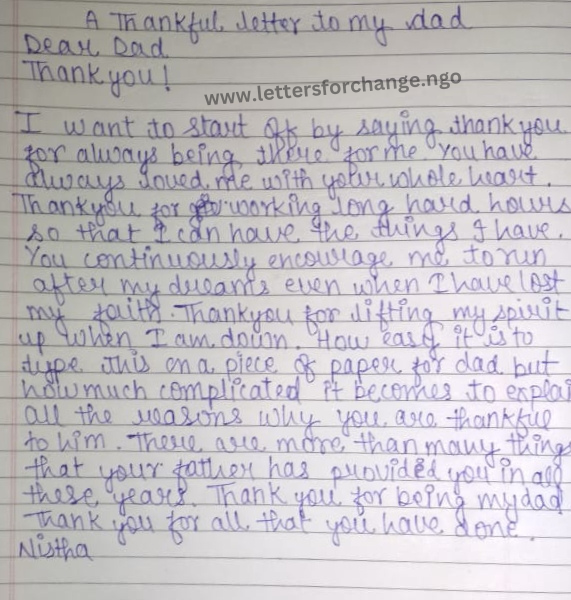 A Thankful letter to my dad
Dear Dad
Thank you!
www.lettersforchange.ngo
I want to start off by saying thank you
for always being there for me. You have
always loved me with your whole heart.
Thankyou for working long hard hours
so that I can have the things I have.
You continuously encourage me to run
after my dreams even when I have lost
my faith. Thankyou for lifting my spirit
up when I am down. How easy it is to
type this on a piece of paper for dad but
how much complicated it becomes to explai
all the reasons why you are thankful
to him. There are more than many things
that your father has provided you in all
these years. Thank you for being my dad
Thank you for all that you have done.
Nistha